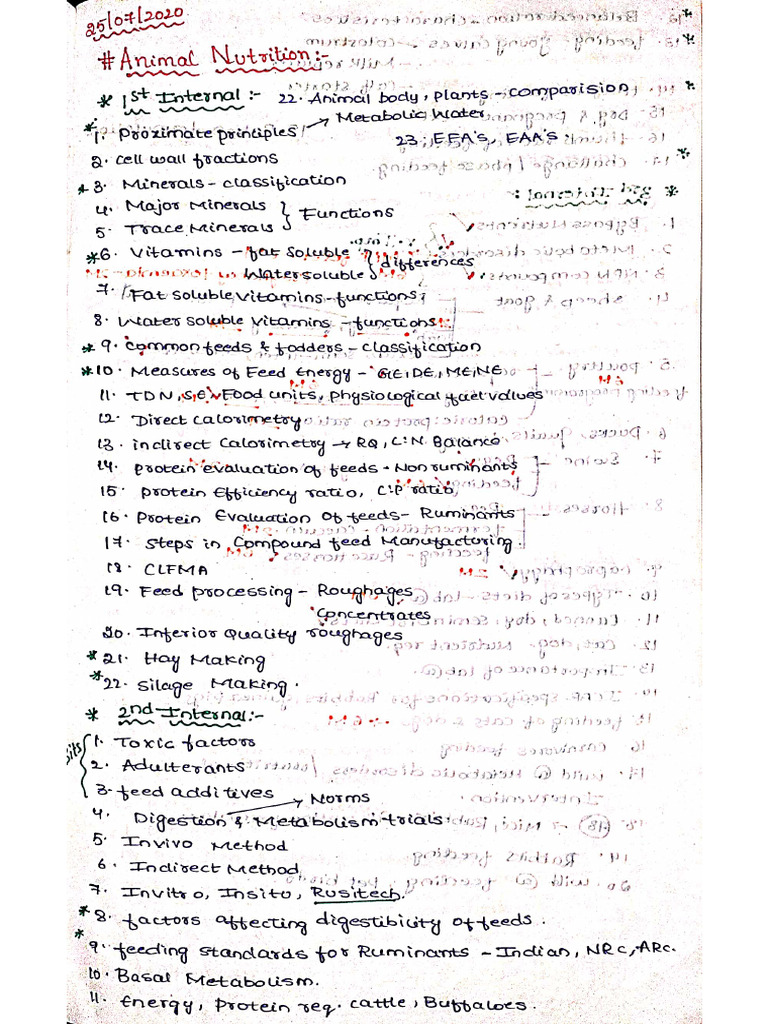 25/07/2020
# Animal Nutrition:-
* 1st Internal:- 22. Animal body, plants - comparision
* 1. Proximate principles → Metabolic Water
23. EFA's, EAA's
2. Cell wall fractions
* 3. Minerals - classification
4. Major Minerals } Functions
5. Trace Minerals
* 6. Vitamins - fat soluble } differences
Water soluble
7. Fat soluble vitamins - functions
8. Water soluble vitamins - functions
* 9. Common feeds & fodders - classification
* 10. Measures of Feed Energy - GE, DE, ME, NE
11. TDN, S.E, Food units, physiological fuel values
12. Direct calorimetry
13. indirect Calorimetry → RQ, C:N Balance
14. protein evaluation of feeds - Non ruminants
15. protein Efficiency ratio, C:P ratio
16. Protein Evaluation Of feeds - Ruminants
17. Steps in Compound feed Manufacturing
18. CLFMA
19. Feed processing - Roughages
Concentrates
20. Inferior Quality roughages
* 21. Hay Making
* 22. Silage Making.
* 2nd Internal:-
1. Toxic factors
2. Adulterants
3. feed additives → Norms
4. Digestion & Metabolism trials
5. Invivo Method
6. Indirect Method
7. Invitro, Insito, Rusitech.
* 8. factors affecting digestibility of feeds.
* 9. feeding standards for Ruminants - Indian, NRC, ARC.
10. Basal Metabolism.
11. Energy, Protein req. cattle, Buffaloes.